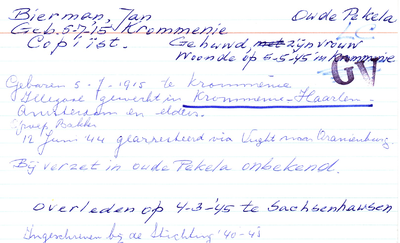 Bierman, Jan Oude Pekela
Geb. 5-7-15 Krommenie
Copiïst. Gehuwd, met zijn vrouw
Woonde op 5-5-45 in Krommenie
GV
Geboren 5-7-1915 te Krommenie
Illegaal gewerkt in Krommenie-Haarlem-
Amsterdam en elders.
Groep Bakker
12 Juni '44 gearresteerd via Vught naar Oranienburg.
Bij verzet in oude Pekela onbekend.
Overleden op 4-3-'45 te Sachsenhausen
Ingeschreven bij de Stichting '40-45